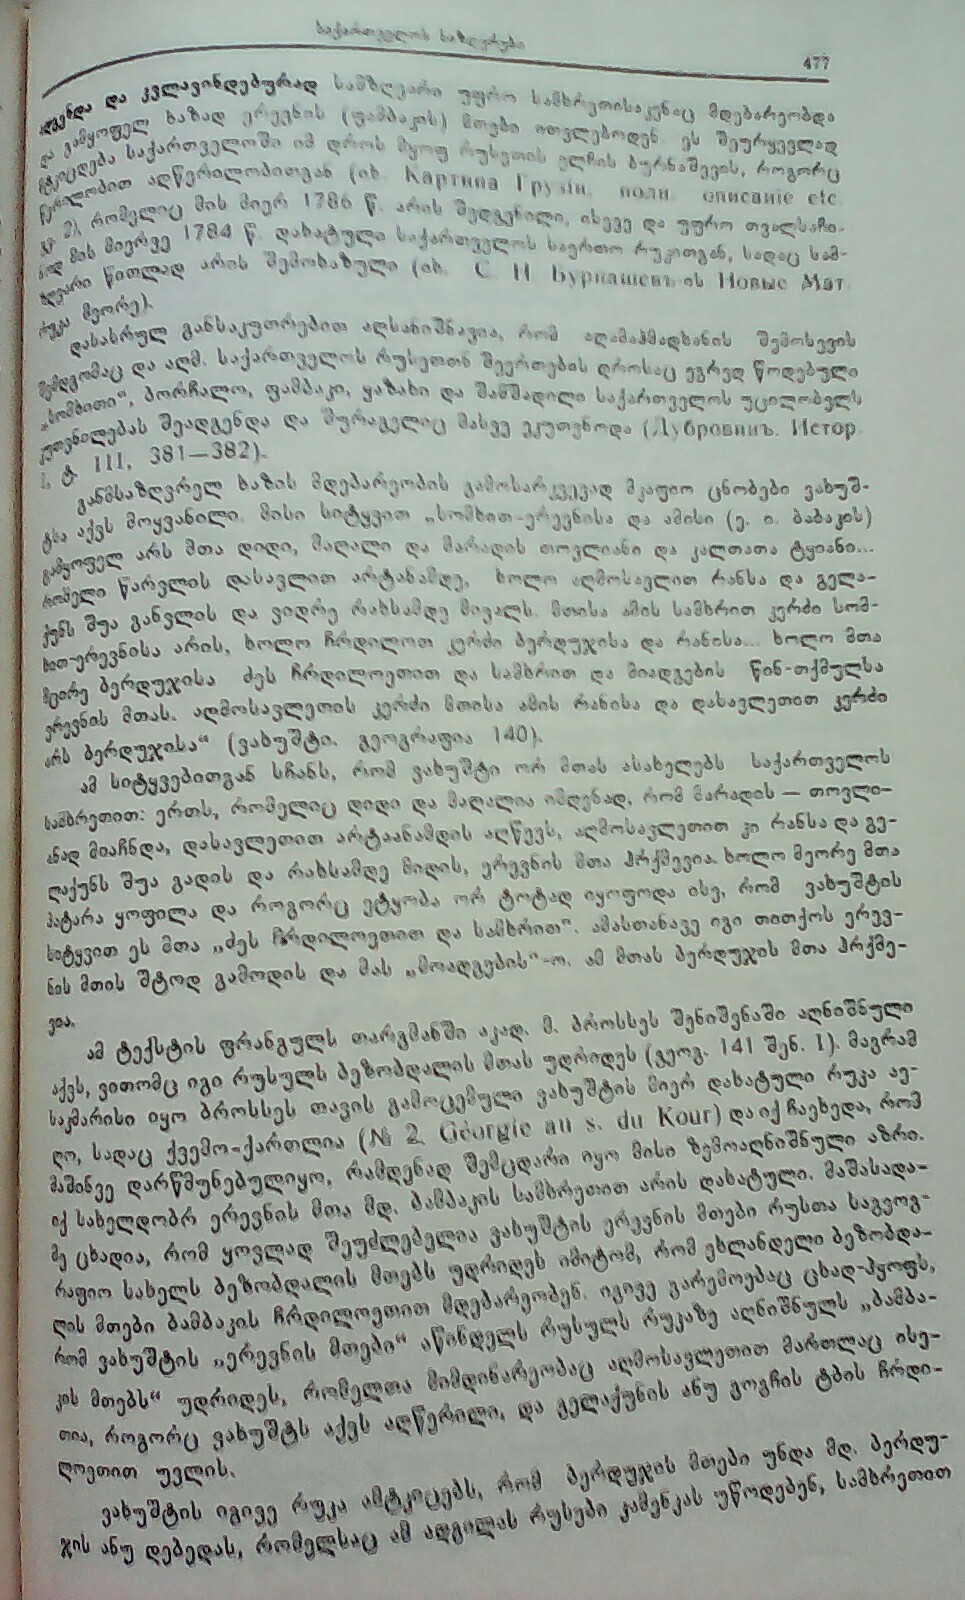 საქართველოს საზღვრები
477
ადგენდა და კვლავინდებურად სამზღვარი უფრო სამხრეთისაკენაც მდებარეობდა
და გამყოფელ ხაზად ერევნის (ფამბაკის) მთები ითვლებოდენ. ეს შეურყევლად
მტკიცდება საქართველოში იმ დროს მყოფ რუსეთის ელჩის ბურნაშევის, როგორც
წერილობით აღწერილობითგან (იხ. Картина Грузіи. полн. описаніе etc.
გვ. 2), რომელიც მის მიერ 1786 წ. არის შედგენილი, ისევე და უფრო თვალსაჩი-
ნოდ მის მიერვე 1784 წ. დახატული საქართველოს საერთო რუკითგან, სადაც სამ-
ზღვარი წითლად არის შემოხაზული (იხ. С. Н. Бурнашевъ-ის Новые Мат.
რუკა მეორე).
დასასრულ განსაკუთრებით აღსანიშნავია, რომ აღამაჰმადხანის შემოსევის
შემდგომაც და აღმ. საქართველოს რუსეთთნ შეერთების დროსაც ეგრედ წოდებული
„სომხითი“, ბორჩალო, ფამბაკი, ყაზახი და შამშადილი საქართველოს უცილობელს
კუთვნილებას შეადგენდა და შურაგელიც მასვე ეკუთვნოდა (Дубровинъ. Истор.
ტ. III, 381—382).
განმსაზღვრელ ხაზის მდებარეობის გამოსარკვევად მკაფიო ცნობები ვახუშ-
ტსა აქვს მოყვანილი. მისი სიტყვით „სომხით-ერევნისა და ამისი (ე. ი. ბაბაკის)
გამყოფელ არს მთა დიდი, მაღალი და მარადის თოვლიანი და კალთათა ტყიანი...
რომელი წარვლის დასავლით არტანამდე, ხოლო აღმოსავლით რანსა და გელა-
ქუნს შუა განვლის და ვიდრე რახსამდე მივალს. მთისა ამის სამხრით კერძი სომ-
ხით-ერევნისა არის, ხოლო ჩრდილოთ კერძი ბერდუჯისა და რანისა... ხოლო მთა
მცირე ბერდუჯისა ძეს ჩრდილოეთით და სამხრით და მიადგების წინ-თქმულსა
ერევნის მთას. აღმოსავლეთის კერძი მთისა ამის რანისა და დასავლეთით კერძი
არს ბერდუჯისა“ (ვახუშტი. გეოგრაფია 140).
ამ სიტყვებითგან სჩანს, რომ ვახუშტი ორ მთას ასახელებს საქართველოს
სამხრეთით: ერთს, რომელიც დიდი და მაღალია იმდენად, რომ მარადის — თოვლი-
ანად მიაჩნდა, დასავლეთით არტაანამდის აღწევს, აღმოსავლეთით კი რანსა და გე-
ლაქუნს შუა გადის და რახსამდე მიდის, ერევნის მთა ჰრქმევია. ხოლო მეორე მთა
პატარა ყოფილა და როგორც ეტყობა ორ ტოტად იყოფოდა ისე, რომ ვახუშტის
სიტყვით ეს მთა „ძეს ჩრდილოეთით და სამხრით“. ამასთანავე იგი თითქოს ერევ-
ნის მთის შტოდ გამოდის და მას „მოადგების“-ო. ამ მთას ბერდუჯის მთა ჰრქმე-
ვია.
ამ ტექსტის ფრანგულს თარგმანში აკად. მ. ბროსსეს შენიშვნაში აღნიშნული
აქვს, ვითომც იგი რუსულს ბეზობდალის მთას უდრიდეს (გეოგ. 141 შენ. 1). მაგრამ
საკმარისი იყო ბროსსეს თავის გამოცემული ვახუშტის მიერ დახატული რუკა აე-
ღო, სადაც ქვემო-ქართლია (№ 2 Géorgie au s. du Kour) და იქ ჩაეხედა, რომ
მაშინვე დარწმუნებულიყო, რამდენად შემცდარი იყო მისი ზემოაღნიშნული აზრი.
იქ სახელდობრ ერევნის მთა მდ. ბამბაკის სამხრეთით არის დახატული. მაშასადა-
მე ცხადია, რომ ყოვლად შეუძლებელია ვახუშტის ერევნის მთები რუსთა საგეოგ-
რაფიო სახელს ბეზობდალის მთებს უდრიდეს იმიტომ, რომ ეხლანდელი ბეზობდა-
ლის მთები ბამბაკის ჩრდილოეთით მდებარეობენ. იგივე გარემოებაც ცხად-ჰყოფს,
რომ ვახუშტის „ერევნის მთები“ აწინდელს რუსულს რუკაზე აღნიშნულს „ბამბა-
კის მთებს“ უდრიდეს, რომელთა მიმდინარეობაც აღმოსავლეთით მართლაც ისე-
თია, როგორც ვახუშტს აქვს აღწერილი, და გელაქუნის ანუ გოგჩის ტბის ჩრდი-
ლოეთით უვლის.
ვახუშტის იგივე რუკა ამტკიცებს, რომ ბერდუჯის მთები უნდა მდ. ბერდუ-
ჯის ანუ დებედას, რომელსაც ამ ადგილას რუსები კამენკას უწოდებენ, სამხრეთით